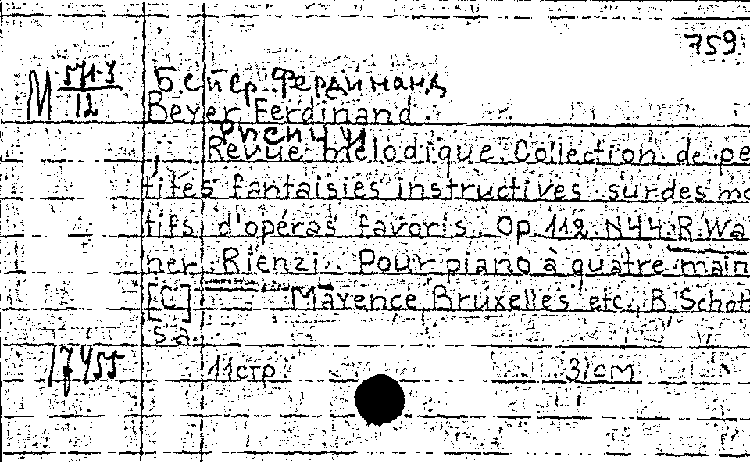 759
М 571-3/12 Бейер Фердинанд
Beyer Ferdinand.
Revue mélodique. Collection de pe
tites fantaisies instructives sur des mo
tifs d'opéras favoris. Op. 112. N44. R. Wa
ner. Rienzi. Pour piano à quatre main
[C] Mayence, Bruxelles etc., B. Schot
s.a.
17455 11 стр. 31 см